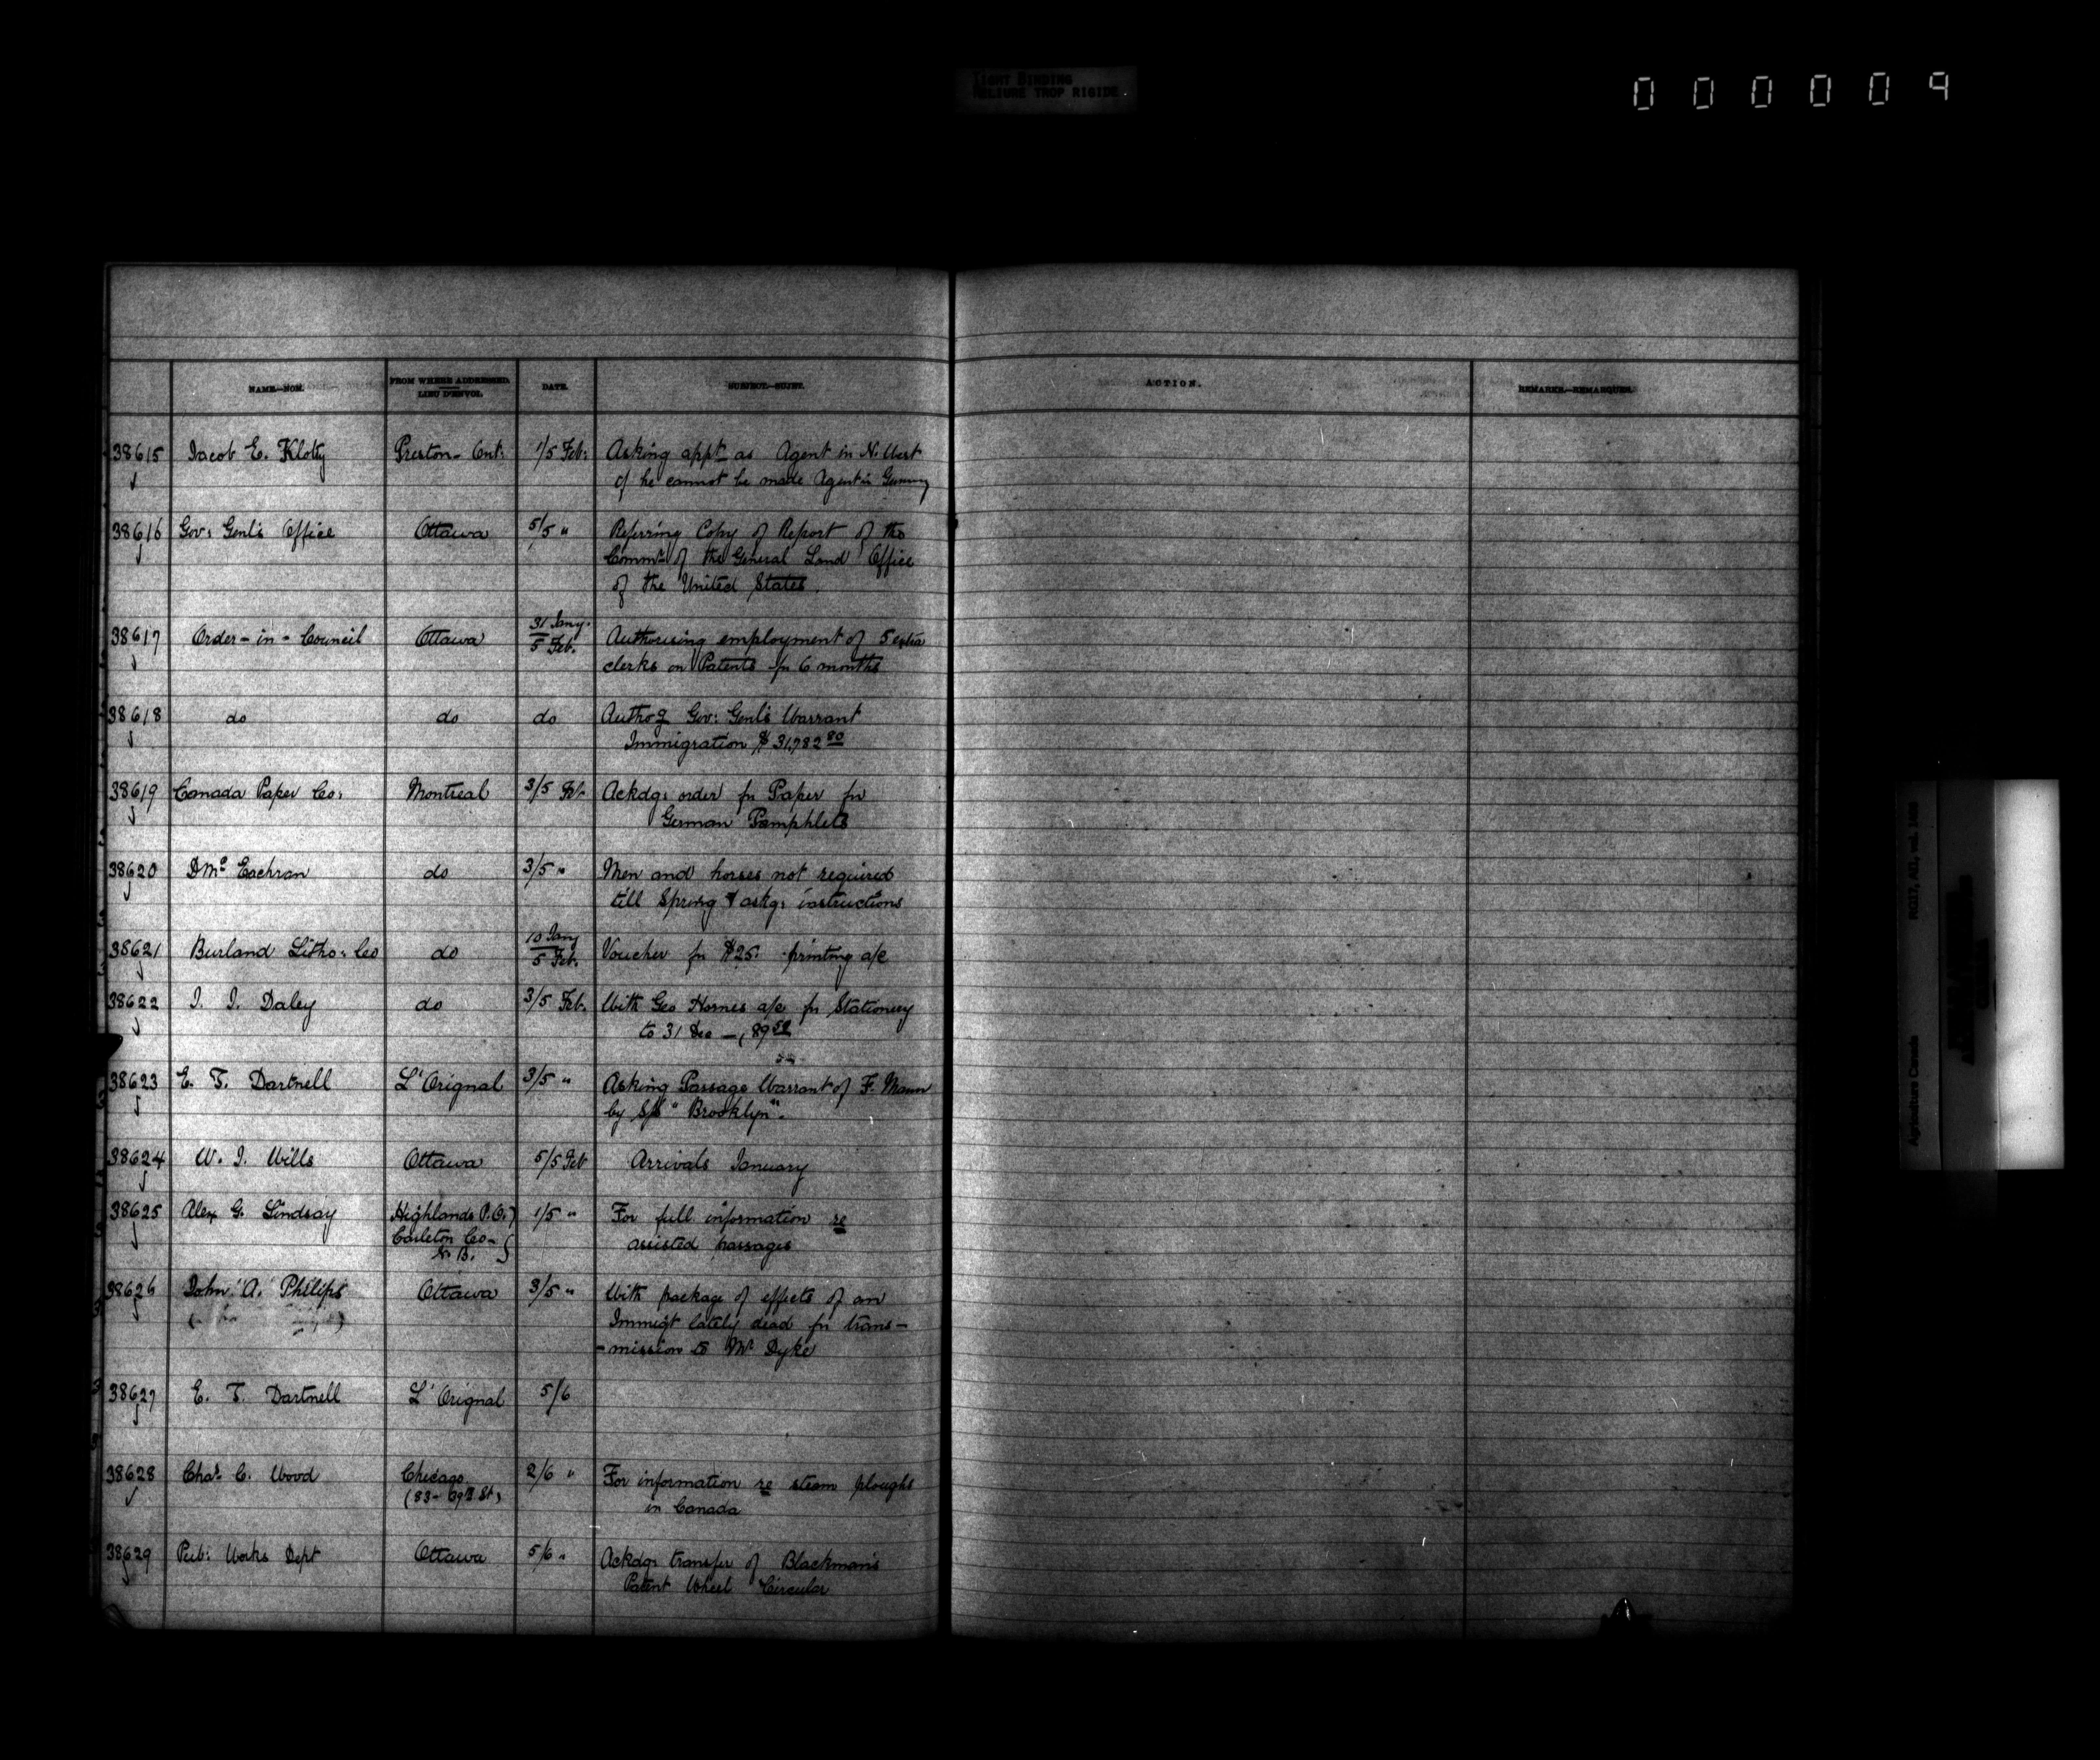 TIGHT BINDING
RELIURE TROP RIGIDE
000009
NAME.—NOM.
FROM WHERE ADDRESSED.
LIEU D'ENVOI.
DATE.
SUBJECT.—SUJET.
ACTION.
REMARKS.—REMARQUES.
38615 Jacob E. Klotz Preston - Ont: 1/5 Feb: Asking appt as Agent in N. West
if he cannot be made Agent in Germany
38616 Gov: Genl's Office Ottawa 5/5 " Referring Copy of Report of the
Commr of the General Land Office
of the United States.
38617 Order-in-Council Ottawa 31 Jany. 5 Feb. Authorising employment of 5 extra
clerks on Patents for 6 months
38618 do do do Authog Gov: Genl's Warrant
Immigration $31,782 80
38619 Canada Paper Co: Montreal 3/5 Feb. Ackdg: order for Paper for
German Pamphlets
38620 D Mc Eachran do 3/5 " Men and horses not required
till Spring & askg: instructions
38621 Burland Litho: Co do 10 Jany 5 Feb. Voucher for $25: printing a/c
38622 J. J. Daley do 3/5 Feb. With Geo Hornes a/c for Stationery
to 31 Dec —, 89
38623 E. T. Dartnell L'Orignal 3/5 " Asking Passage Warrant of F. Mann
by S/S "Brooklyn".
38624 W. J. Wills Ottawa 5/5 Feb Arrivals January
38625 Alex G. Lindsay Highlands P.O. 1/5 " For full information re
Carleton Co- assisted passages
N. B.
38626 John "A." Philips Ottawa 3/5 " With package of effects of an
Immigt lately dead for trans-
-mission to Mr Dyke
38627 E. T. Dartnell L'Orignal 5/6
38628 Chas. C. Wood Chicago 2/6 " For information re steam ploughs
(83- 69th St) in Canada
38629 Pub: Works Dept Ottawa 5/6 " Ackdg: transfer of Blackman's
Patent Wheel Circular
Agriculture Canada RG17, AII, vol.